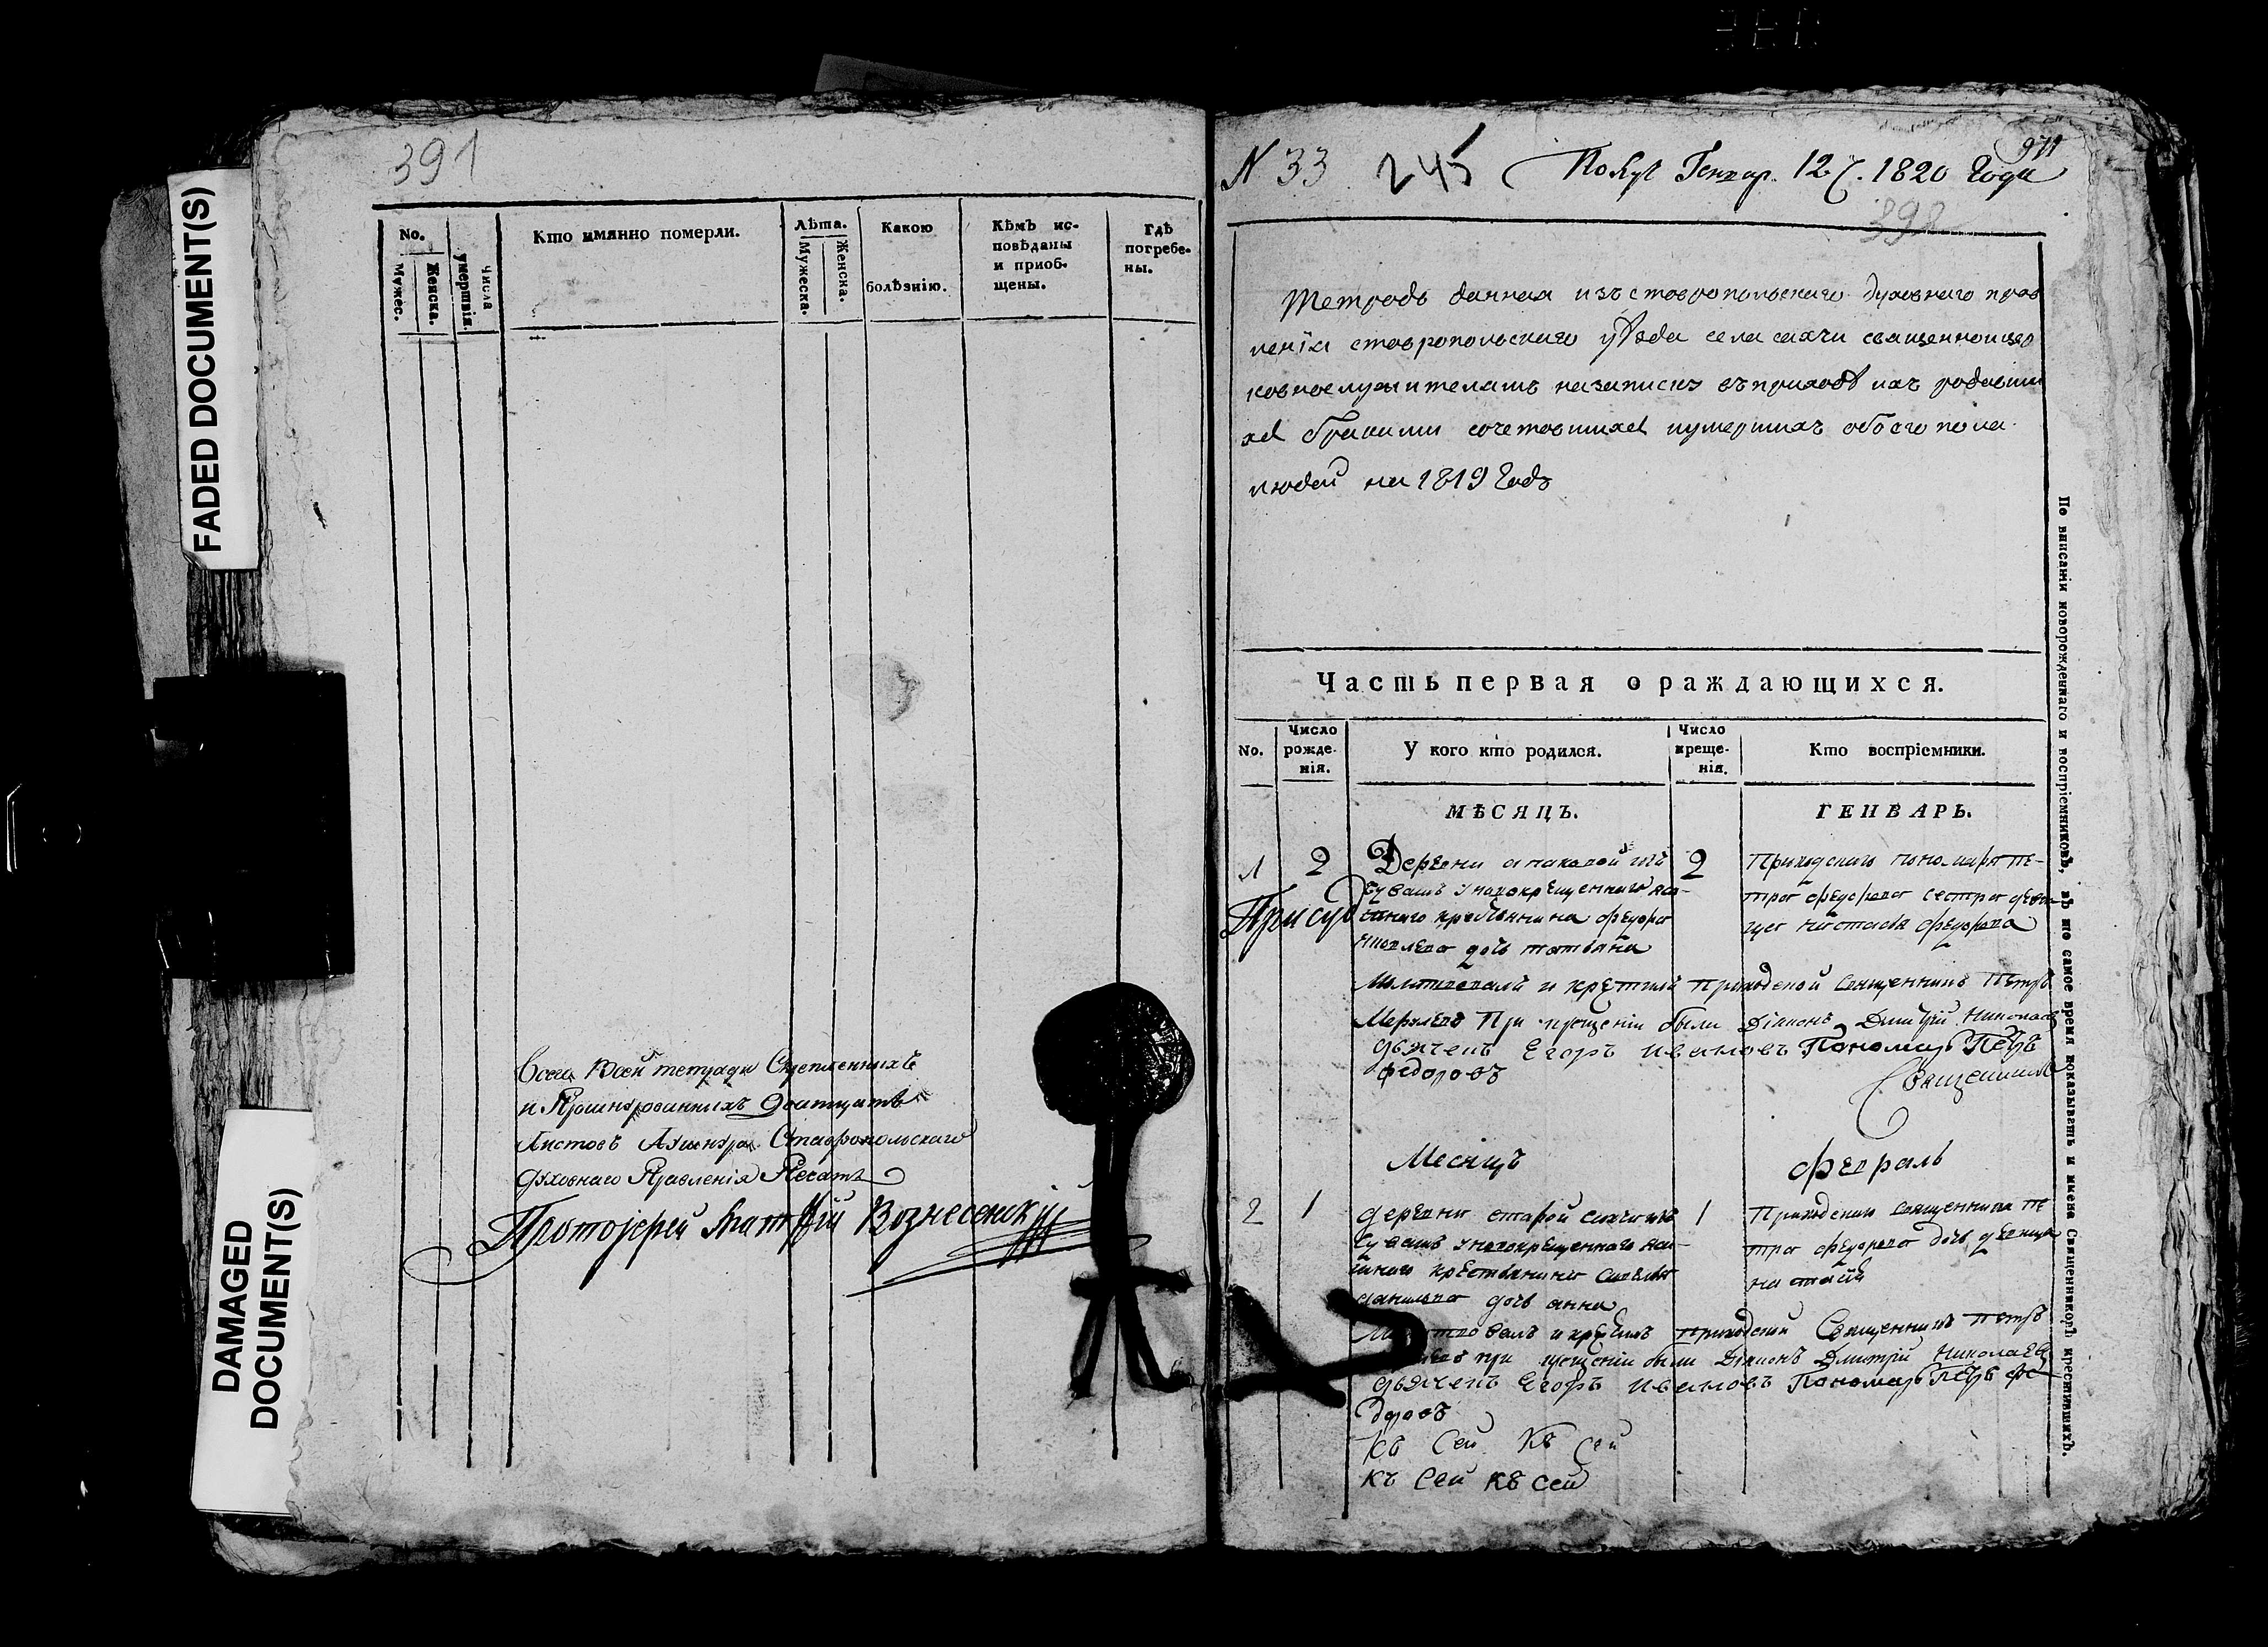 FADED DOCUMENT(S)
DAMAGED
DOCUMENT(S)
391
No.
Мужес.
Женска.
Числа
умертвія.
Кто имянно померли.
Лѣта.
Мужеска.
Женска.
Какою
болѣзнію.
Кѣмъ ис-
повѣданы
и приоб-
щены.
Гдѣ
погребе-
ны.
Всего въ сей тетради Скрепленныхъ
и Прошнурованныхъ дватцать
Листовъ Ушнура Ставропольскаго
Духовнаго Правленія Печать
Протоіерей Вознесенскій
N 33
245
Генвар. 12 1820 Года
971
392
Тетрадь данная изъ ставропольскаго духовнаго прав
ленія ставропольскаго уѣзда села священноцер
ковнослужителямъ на записку въ приходѣ ихъ родивши
хся браками сочетавшихся и умершихъ обоего пола
людей на 1819 Годъ
Часть первая о раждающихся.
No.
Число
рожде-
нія.
У кого кто родился.
Число
креще-
нія.
Кто воспріемники.
МѢСЯЦЪ.
ГЕНВАРЬ.
1
2
Деревни
чувашъ у новокрещеннаго яса-
шнаго крестьянина федора
дочь татьяна
2
Приходскаго пономаря пе-
тра федорова сестра деви
ца настасья федорова
Молитвовалъ и крестилъ Приходской Священникъ Петръ
При крещеніи были Діаконъ Дмитрій Николаевъ
дьячекъ Егоръ Ивановъ Пономарь Петръ
федоровъ
Священникъ
Месяцъ
февраль
2
1
деревни старой
чувашъ у новокрещеннаго яса-
шнаго крестьянина
дочь анна
1
Приходскаго священника пе
тра федорова дочь девица
Молитвовалъ и крестилъ приходской Священникъ петръ
при крещеніи были Діаконъ Дмитрій Николаевъ
дьячекъ Егоръ Ивановъ Пономарь Петръ фе
доровъ
Къ Сей Къ Сей
Къ Сей Къ сей
По вписаніи новорожденнаго и воспріемниковъ, въ то самое время показывать и имена Священниковъ крестившихъ.